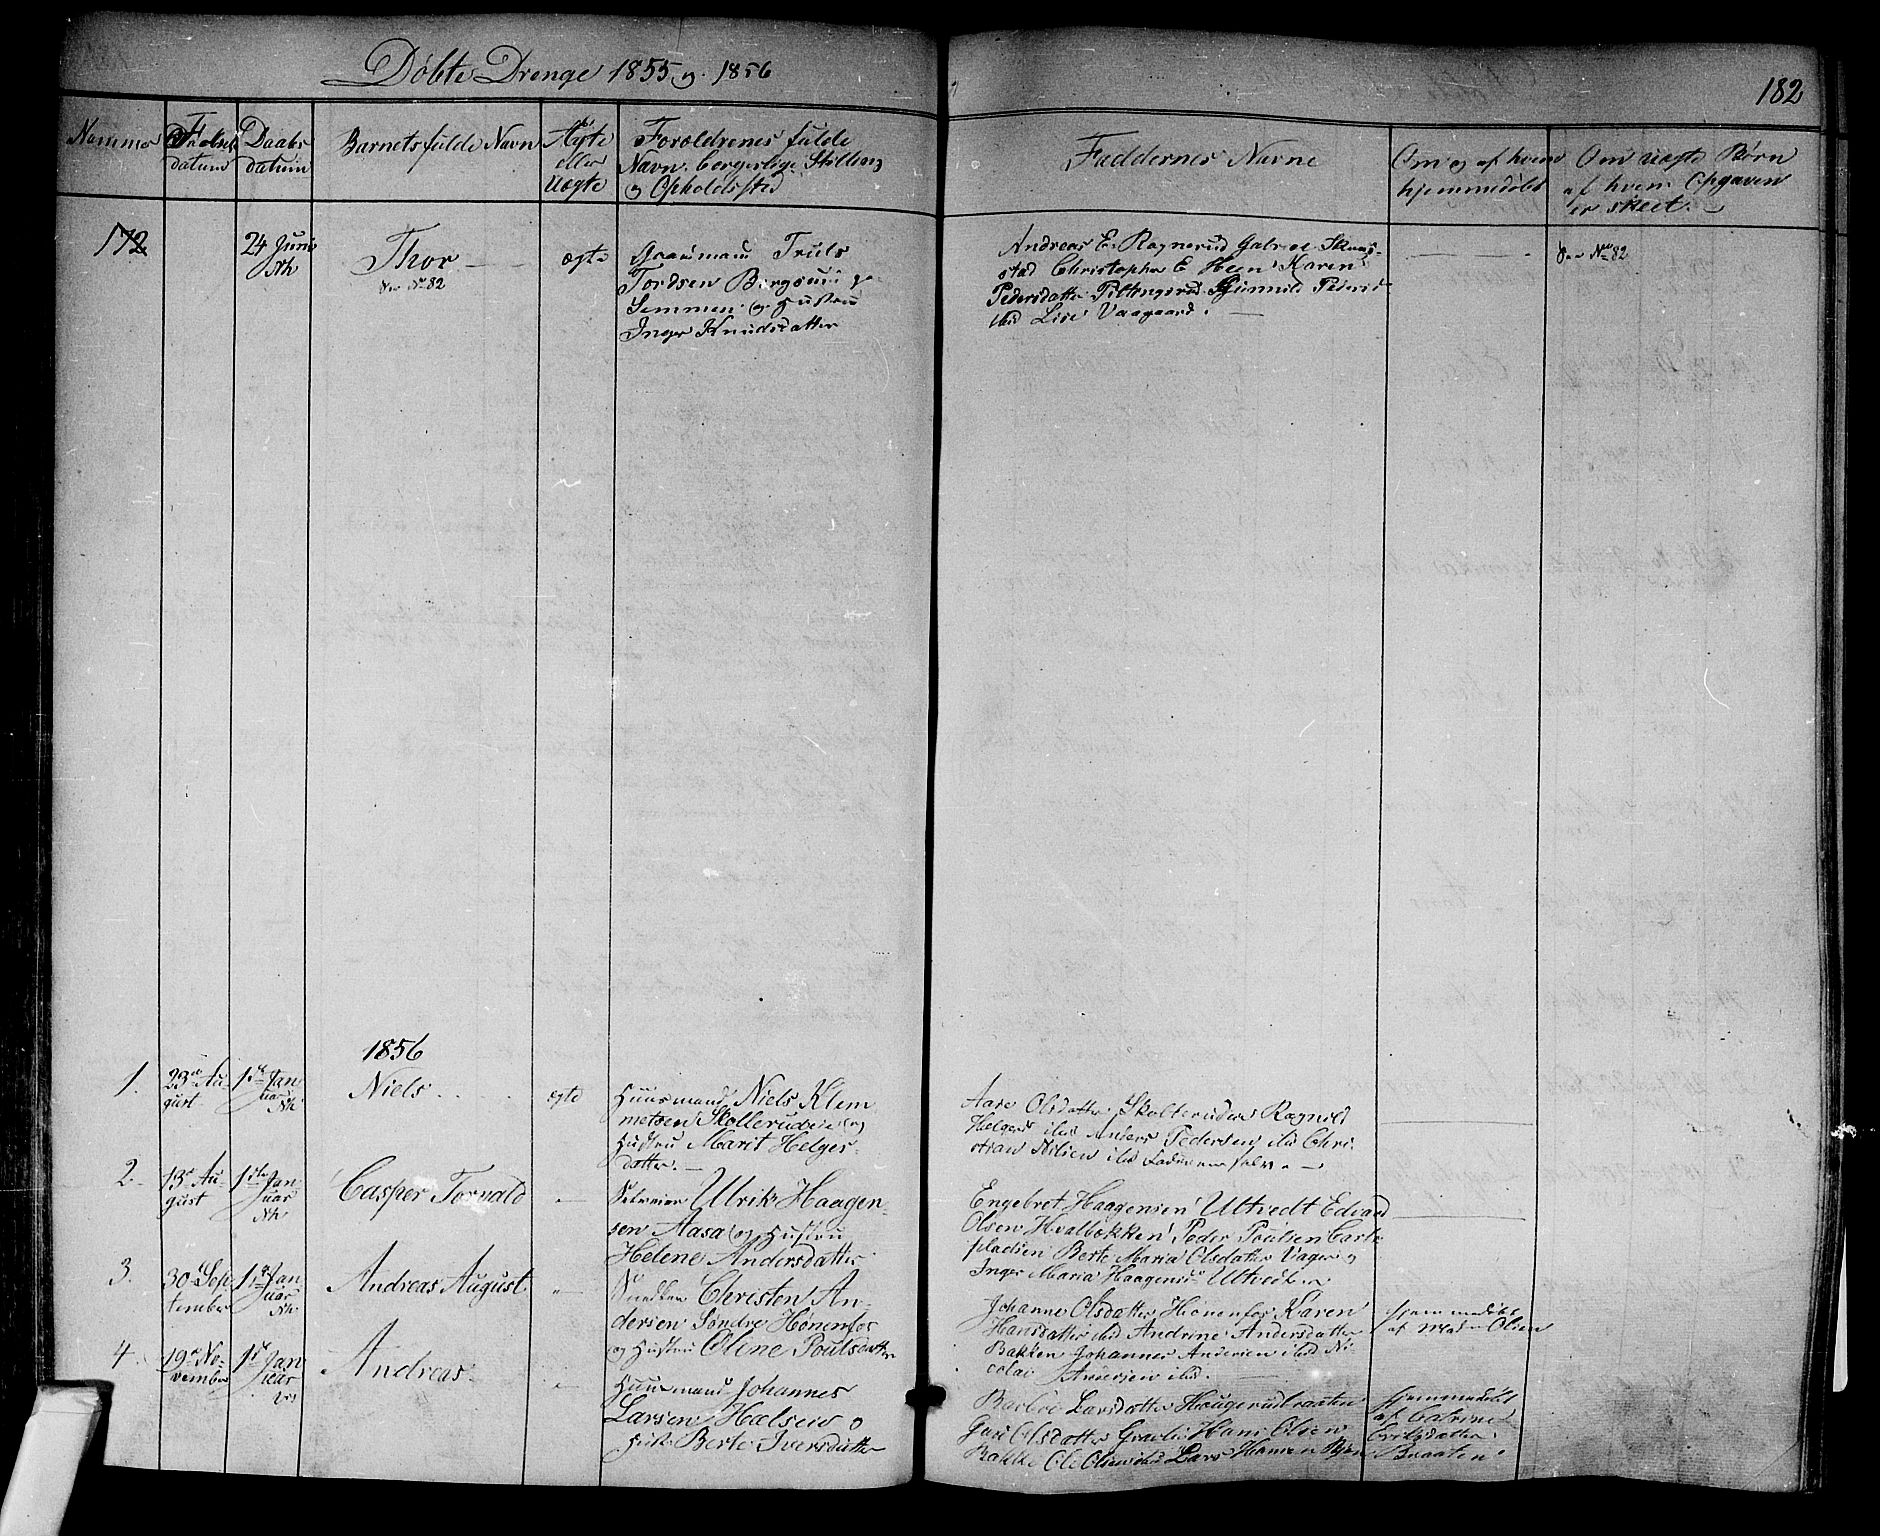 Døbte Drenge 1855 og 1856
182
Nummer
Fødsels
datum
Daabs
datum
Barnets fulde Navn
Ægte
eller
Uægte
Foroldrenes fulde
Navn, borgerlige Stilling
og Opholdssted
Faddernes Navne
Om og af hvem
hjemmedøbt
Om uægte Børn
af hvem Opgaven
er skeet.
172
24 Juni
Nk
Thor
See No 82
ægte
Gaardmand Truls
Tordsen
Semmen og Hustru
Inger Knudsdatter
Andreas E. Ragnerud Gabriel
stad Christopher E Heen Karen
Pedersdatter Pilterngsrud Gunnild Peders
ibid Lise Vaagaard.
See No 82
1856
1.
23de Au-
gust
1ste Jan
uar
Nk
Niels
ægte
Huusmand Niels Klem
metsen Skollerudeie og
Hustru Marit Helges-
datter.
Aase Olsdatter Skollerudeie Ragnild
Helges ibid Anders Pedersen ibid Chri-
stian Nilsen ibid Faderen selv.
2.
13de Au-
gust
1ste Jan
uar
Nk
Casper Torvald
Selveier Ulrik Haagen-
sen Aasa og Hustru
Helene Andersdatter
Engebret Haagensen Ultvedt Edvard
Olsen Hvalbekken Peder Poulsen Carls
pladsen Berte Maria Olsdatter Vager og
Inger Maria Haagensd Ultvedt.
3.
30 Sep
tember
1ste Jan
uar
Nk
Andreas August
Snedker Christen An-
dersen Søndre Hønenfos
og Hustru Oline Poulsdatter
Johanne Olsdatter Hønenfos Karen
Hansdatter ibid Andrine Andersdatter
Bakken Johannes Andersen ibid Ni-
colai Andersen ibid.
Hjemmedøbt
af Mad. Olsen
4.
19de No-
vember
1ste Jan
uar
Andreas
Huusmand Johannes
Larsen Hælseie og
Hustr Berte Iversdatter
Barbro Larsdatter Haugerudbraaten
Guri Olsdatter Hans Olsen
Bakke Ole Olsen ibid Lars Hansen
Hjemmedøbt
af Catrine
Eriksdatter
Braaten